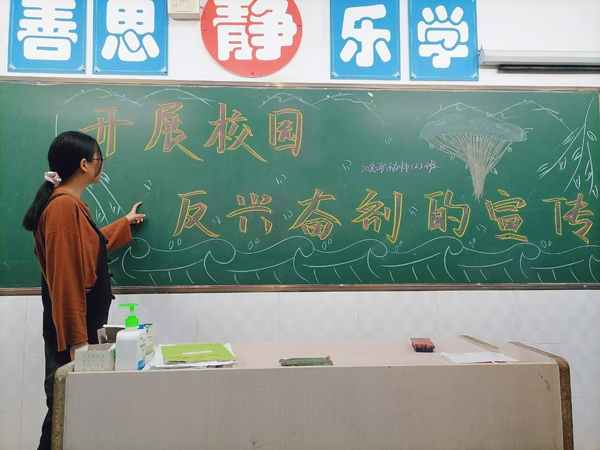 善思静乐学
开展校园
反兴奋剂的宣传